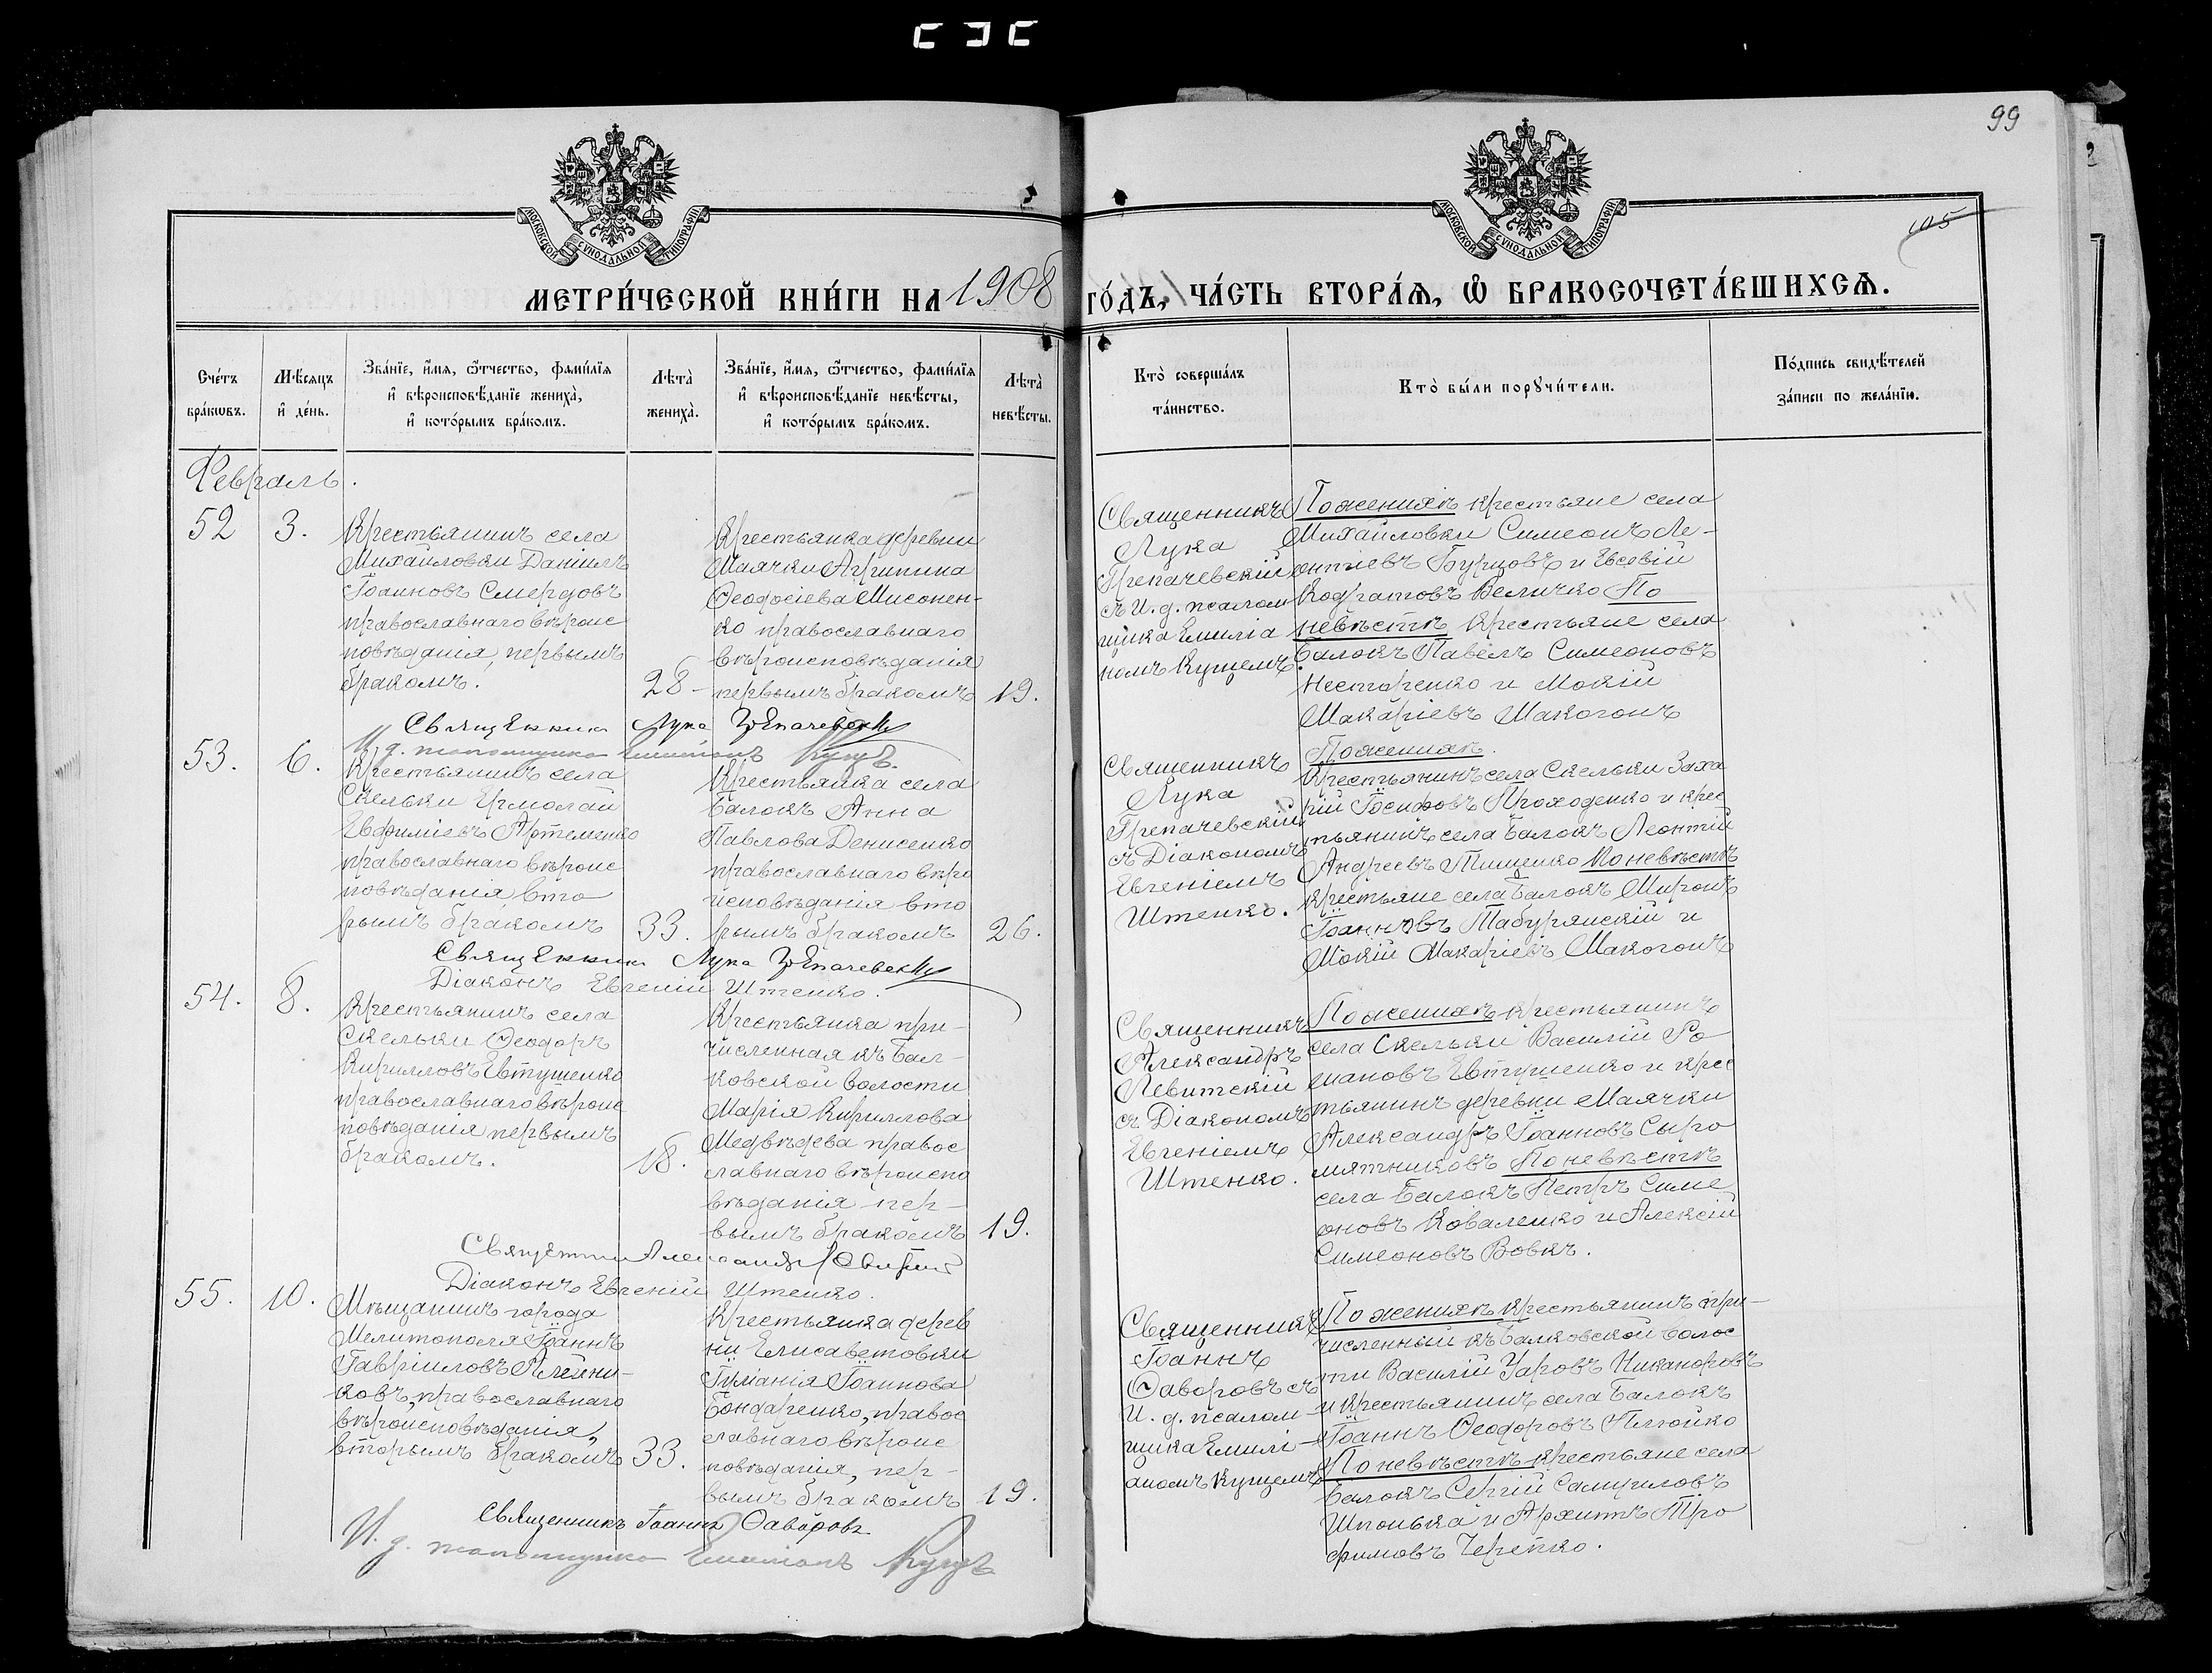 99
105
МОСКОВСКОЙ СѴНОДАЛЬНОЙ ТИПОГРАФІИ
МОСКОВСКОЙ СѴНОДАЛЬНОЙ ТИПОГРАФІИ
МЕТРИ́ЧЕСКОЙ КНИ́ГИ НА 1908 ГО́ДЪ, ЧА́СТЬ ВТОРА́Ѧ, Ѡ҆ БРАКОСОЧЕТА́ВШИХСѦ.
Сче́тъ
бра́кѡвъ.
Мѣ́сяцъ
и҆ де́нь.
Зва́нїе, и҆́мѧ, ѻ҆́тчество, фами́лїѧ
и҆ вѣроисповѣ́данїе жениха̀,
и҆ кото́рымъ бра́комъ.
Лѣта̀
жениха̀.
Зва́нїе, и҆́мѧ, ѻ҆́тчество, фами́лїѧ
и҆ вѣроисповѣ́данїе невѣ́сты,
и҆ кото́рымъ бра́комъ.
Лѣта̀
невѣ́сты.
Кто̀ соверша́лъ
та́инство.
Кто̀ бы́ли порꙋчи́тели.
По́дпись свидѣ́телей
за́писи по жела́нїю.
Февраль.
52
3.
Крестьянинъ села
Михайловки Даніилъ
Іоанновъ Смердовъ
православнаго вѣроис
повѣданія, первымъ
бракомъ.
28
Крестьянка деревни
Маячки Агрипина
Ѳеодосіева Мисонен-
ко православнаго
вѣроисповѣданія
первымъ бракомъ
19.
Священникъ
Лука
Трепачевскій
съ И. д. псалом
щика Емиліа
номъ Куцемъ.
По женихѣ крестьяне села
Михайловки Симеонъ Ле-
онтіевъ Бурцовъ и Евсевій
Кодратовъ Величко По
невѣстѣ крестьяне села
Балокъ Павелъ Симеоновъ
Нестеренко и Мокій
Макаріевъ Макогонъ
Священникъ Лука Трепачевскій
И. д. псаломщика Емиліанъ Куцъ.
53.
6.
Крестьянинъ села
Скельки Ермолай
Евфиміевъ Артеменко
православнаго вѣроис
повѣданія вто
рымъ бракомъ
33.
Крестьянка села
Балокъ Анна
Павлова Денисенко
православнаго вѣро
исповѣданія вто
рымъ бракомъ
26.
Священникъ
Лука
Трепачевскій
съ Діакономъ
Евгеніемъ
Штенко.
По женихѣ.
Крестьянинъ села Скельки Заха
рій Іосифовъ Проходенко и крес
тьянинъ села Балокъ Леонтій
Андреевъ Тищенко По невѣстѣ
крестьяне села Балокъ Миронъ
Іоанновъ Табурянскій и
Мокій Макаріевъ Макогонъ
Священникъ Лука Трепачевскій
Діаконъ Евгеній Штенко.
54.
8.
Крестьянинъ села
Скельки Ѳеодоръ
Кирилловъ Евтушенко
православнаго вѣроис
повѣданія первымъ
бракомъ.
18.
Крестьянка при-
численная къ Бал-
ковской волости
Марія Кириллова
Медвѣдева правос
лавнаго вѣроиспо
вѣданія пер-
вымъ бракомъ
19.
Священникъ
Александръ
Левитскій
съ Діакономъ
Евгеніемъ
Штенко.
По женихѣ крестьянинъ
села Скельки Василій Ро
мановъ Евтушенко и крес
тьянинъ деревни Маячки
Александръ Іоанновъ Сыро
мятниковъ По невѣстѣ
села Балокъ Петръ Симе
оновъ Коваленко и Алексій
Симеоновъ Вовкъ.
Священникъ Александръ Левитскій
Діаконъ Евгеній Штенко.
55.
10.
Мѣщанинъ города
Мелитополя Іоаннъ
Гавріиловъ Алейни-
ковъ, православнаго
вѣроисповѣданія,
вторымъ бракомъ
33.
Крестьянка дерев
ни Елисаветовки
Іуліанія Іоаннова
Бондаренко, правос
лавнаго вѣроис
повѣданія, пер-
вымъ бракомъ
19.
Священникъ
Іоаннъ
Ѳаворовъ съ
И. д. псалом-
щика Емилі-
аномъ Куцемъ
По женихѣ крестьянинъ при-
численный къ Балковской волос
ти Василій Уаровъ Никаноровъ
и крестьянинъ села Балокъ
Іоаннъ Ѳеодоровъ Плюйко
По невѣстѣ крестьяне села
Балокъ Сергій Самуиловъ
Шпонька и Архиппъ Тро
фимовъ Черепко.
Священникъ Іоаннъ Ѳаворовъ
И. д. псаломщика Емиліанъ Куцъ